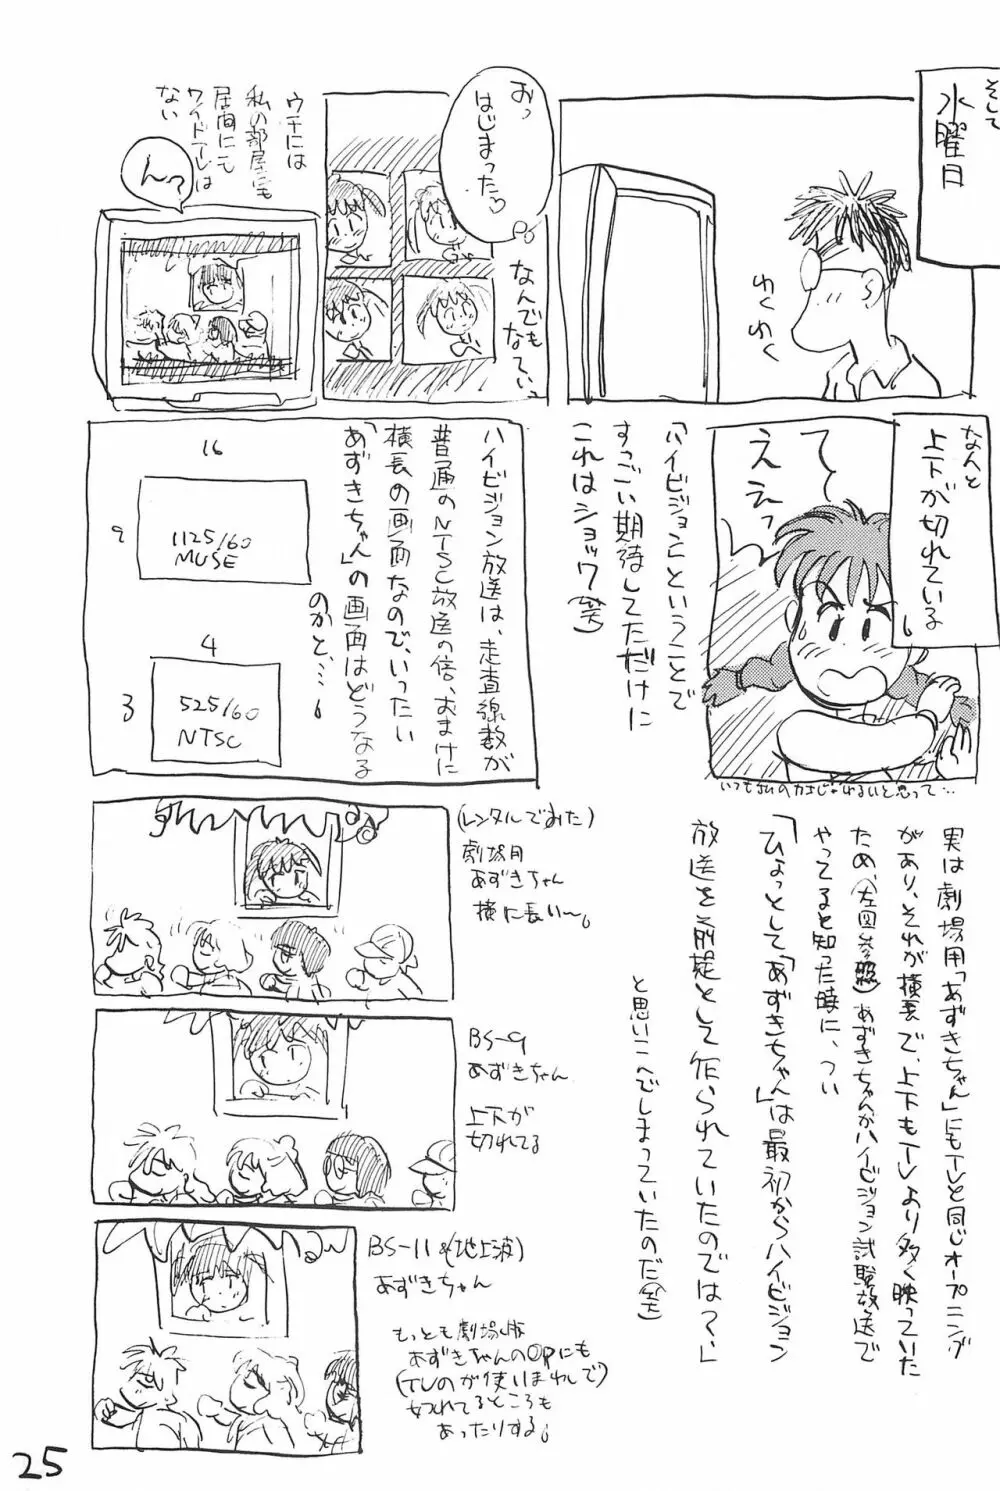 そして
水曜日
わくわく
おっ
はじまった♡
なんでも
なてぃっ
ウチには
私の部屋にも
居間にも
ワイドテレビは
ない
んっ?
なんと
上下が切れている
えぇっ
て
いつも
と思って…
「ハイビジョン」ということで
すっごい期待してただけに
これはショック(笑)
ハイビジョン放送は、走査線数が
普通のNTSC放送の倍、おまけに
横長の画面なので、いったい
「あずきちゃん」の画面はどうなる
のかと…。
16
9
1125/60
MUSE
4
3
525/60
NTSC
実は劇場用「あずきちゃん」にもTVと同じオープニング
があり、それが横長で、上下もTVより多く映っていた
ため、(左図参照)あずきちゃんがハイビジョン試験放送で
やってると知った時に、つい
「ひょっとして、「あずきちゃん」は最初からハイビジョン
放送を前提として作られていたのでは?」
と思いこんでしまっていたのだ(笑)
(レンタルでみた)
劇場用
あずきちゃん
横に長い〜。
BS-9
あずきちゃん
上下が
切れてる
BS-11&(地上波)
あずきちゃん
もっとも劇場版
あずきちゃんのOPにも
(TVのが使いまわしで)
切れてるところも
あったりする。
25